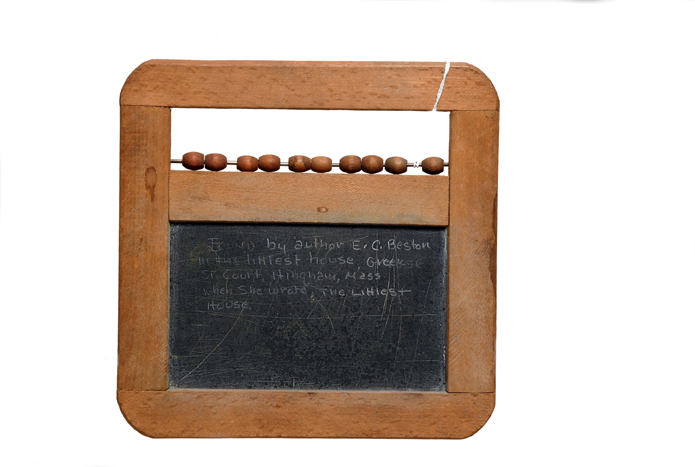 Found by author E.C. Beston
in the Littlest House,
St. Court, Hingham, Mass
when She wrote, The Littlest
House.